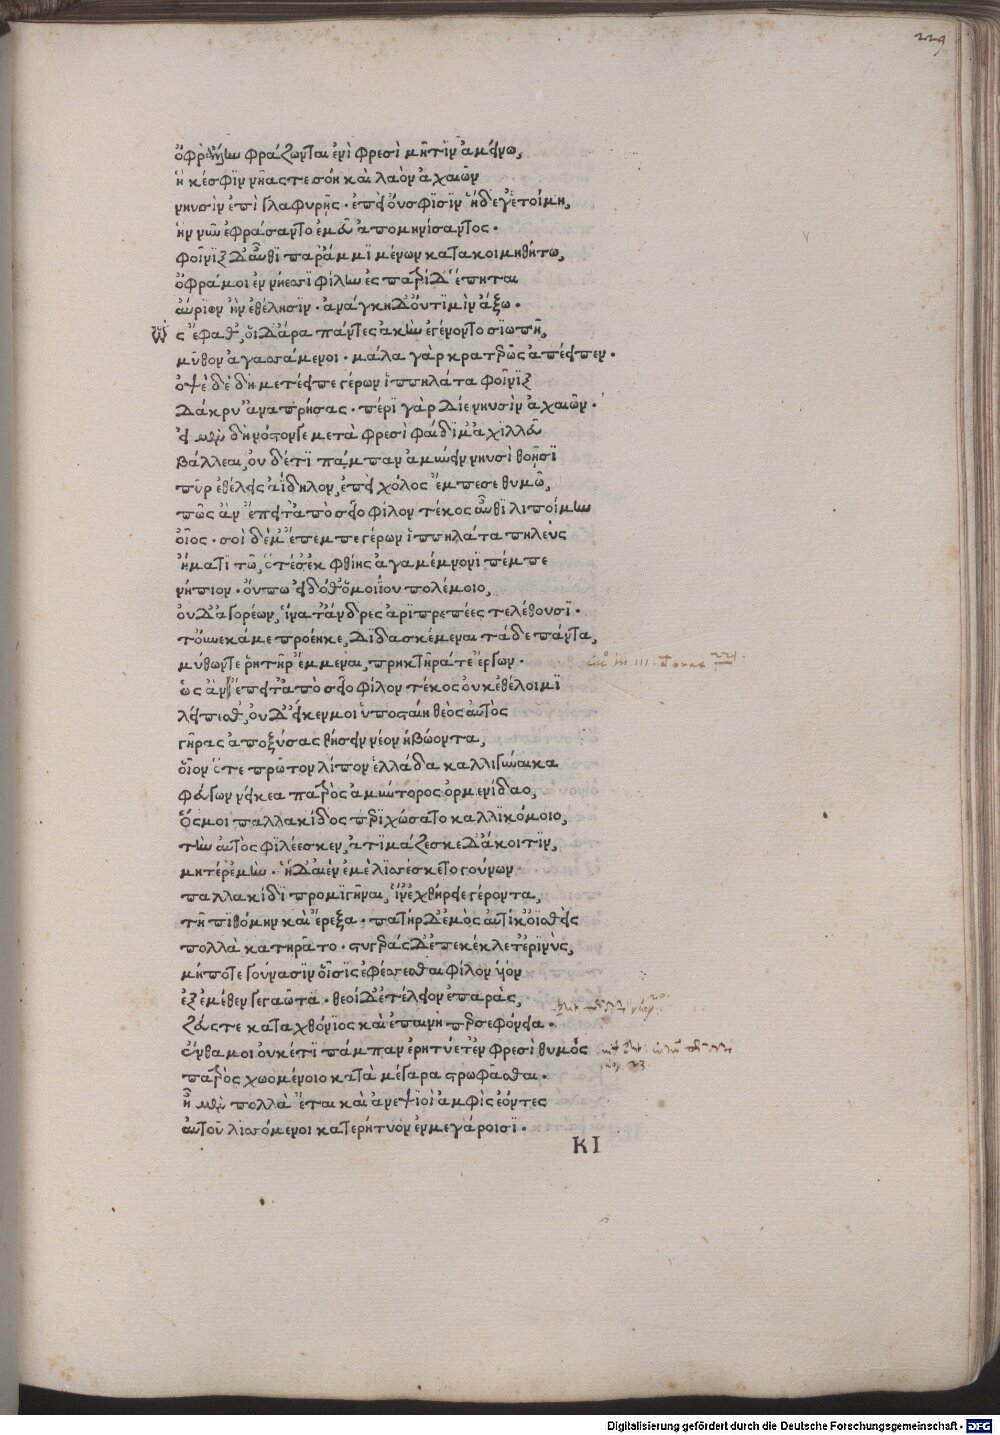 229
ὄφρ' ἄλλην φράζωνται ἐνὶ φρεσὶ μῆτιν ἀμείνω,
ἥ κέ σφιν νῆάς τε σόη καὶ λαὸν ἀχαιῶν
νηυσὶν ἐπὶ γλαφυρῆς· ἐπεὶ οὔ σφισιν ἥδε γ' ἑτοίμη,
ἣν νῦν ἐφράσαντο ἐμεῦ ἀπομηνίσαντος·
φοῖνιξ δ' αὖθι παρ' ἄμμι μένων κατακοιμηθήτω,
ὄφρά μοι ἐν νήεσσι φίλην ἐς πατρίδ' ἕπηται
αὔριον ἢν ἐθέλησιν· ἀνάγκη δ' οὔ τί μιν ἄξω·
Ὣς ἔφαθ', οἱ δ' ἄρα πάντες ἀκὴν ἐγένοντο σιωπῆ,
μῦθον ἀγασσάμενοι· μάλα γὰρ κρατερῶς ἀπέειπεν·
ὀψὲ δὲ δὴ μετέειπε γέρων ἱππηλάτα φοῖνιξ
δάκρυ' ἀναπρήσας· πέρι γὰρ δίε νηυσὶν ἀχαιῶν·
εἰ μὲν δὴ νόστόν γε μετὰ φρεσὶ φαίδιμ' ἀχιλλεῦ
βάλλεαι, οὐδέ τι πάμπαν ἀμύνειν νηυσὶ θοῆσι
πῦρ ἐθέλεις ἀΐδηλον, ἐπεὶ χόλος ἔμπεσε θυμῶ,
πῶς ἂν ἔπειτ' ἀπὸ σεῖο φίλον τέκος αὖθι λιποίμην
οἶος· σοὶ δέ μ' ἔπεμπε γέρων ἱππηλάτα πηλεὺς
ἤματι τῶ, ὅτε σ' ἐκ φθίης ἀγαμέμνονι πέμπε
νήπιον· οὔπω εἰδόθ' ὁμοιΐου πολέμοιο,
οὐδ' ἀγορέων, ἵνα τ' ἄνδρες ἀριπρεπέες τελέθουσι·
τοὔνεκά με προέηκε, διδασκέμεναι τάδε πάντα,
μύθων τε ῥητῆρ' ἔμμεναι, πρηκτῆρά τε ἔργων·
ὡς ἂν ἔπειτ' ἀπὸ σεῖο φίλον τέκος οὐκ ἐθέλοιμι
λείπεσθ', οὐδ' εἴ κεν μοι ὑποσταίη θεὸς αὐτὸς
γῆρας ἀποξύσας θήσειν νέον ἡβώοντα,
οἷον ὅτε πρῶτον λίπον ἑλλάδα καλλιγύναικα
φεύγων νείκεα πατρὸς ἀμύντορος ὀρμενίδαο,
ὅς μοι παλλακίδος περιχώσατο καλλικόμοιο,
τὴν αὐτὸς φιλέεσκεν, ἀτιμάζεσκε δ' ἄκοιτιν,
μητέρ' ἐμὴν· ἡ δ' αἰὲν ἐμὲ λισσέσκετο γούνων
παλλακίδι προμιγῆναι, ἵν' ἐχθήρειε γέροντα,
τῆ πιθόμην καὶ ἔρεξα· πατὴρ δ' ἐμὸς αὐτίκ' ὀϊσθεὶς
πολλὰ κατηρᾶτο· στυγερὰς δ' ἐπεκέκλετ' ἐριννὺς,
μήποτε γούνασιν οἷσιν ἐφέσσεσθαι φίλον υἱὸν
ἐξ ἐμέθεν γεγαῶτα· θεοὶ δ' ἐτέλειον ἐπαρὰς,
ζεύς τε καταχθόνιος καὶ ἐπαινὴ περσεφόνεια·
ἔνθ' ἀμοι οὐκέτι πάμπαν ἐρητύετ' ἐν φρεσὶ θυμὸς
πατρὸς χωομένοιο κατὰ μέγαρα στρωφᾶσθαι·
ἦ μὲν πολλὰ ἔται καὶ ἀνεψιοὶ ἀμφὶς ἐόντες
αὐτοῦ λισσόμενοι κατερήτυον ἐν μεγάροισι·
ΚΙ
Digitalisierung gefördert durch die Deutsche Forschungsgemeinschaft - DFG